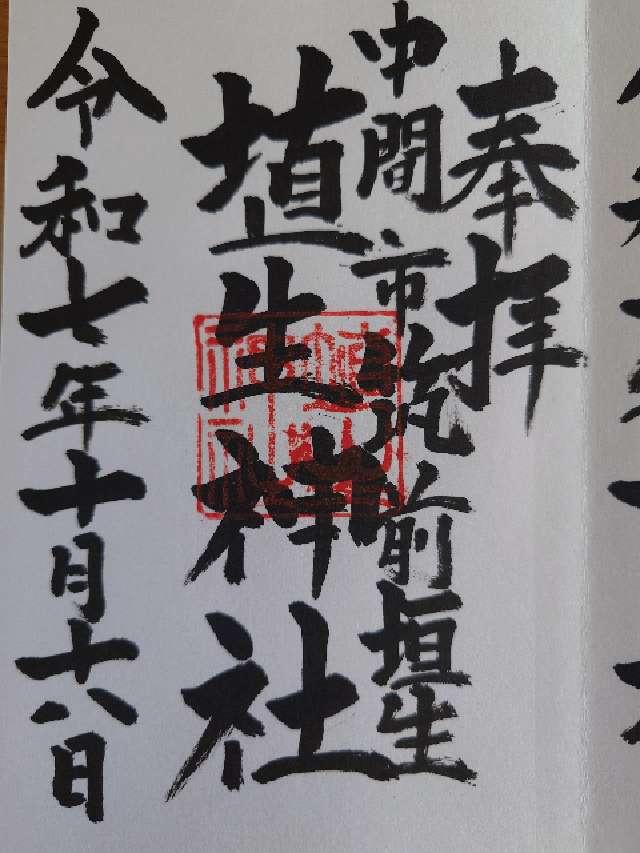 奉拝
中間市筑前垣生
埴生神社
令和七年十月十八日